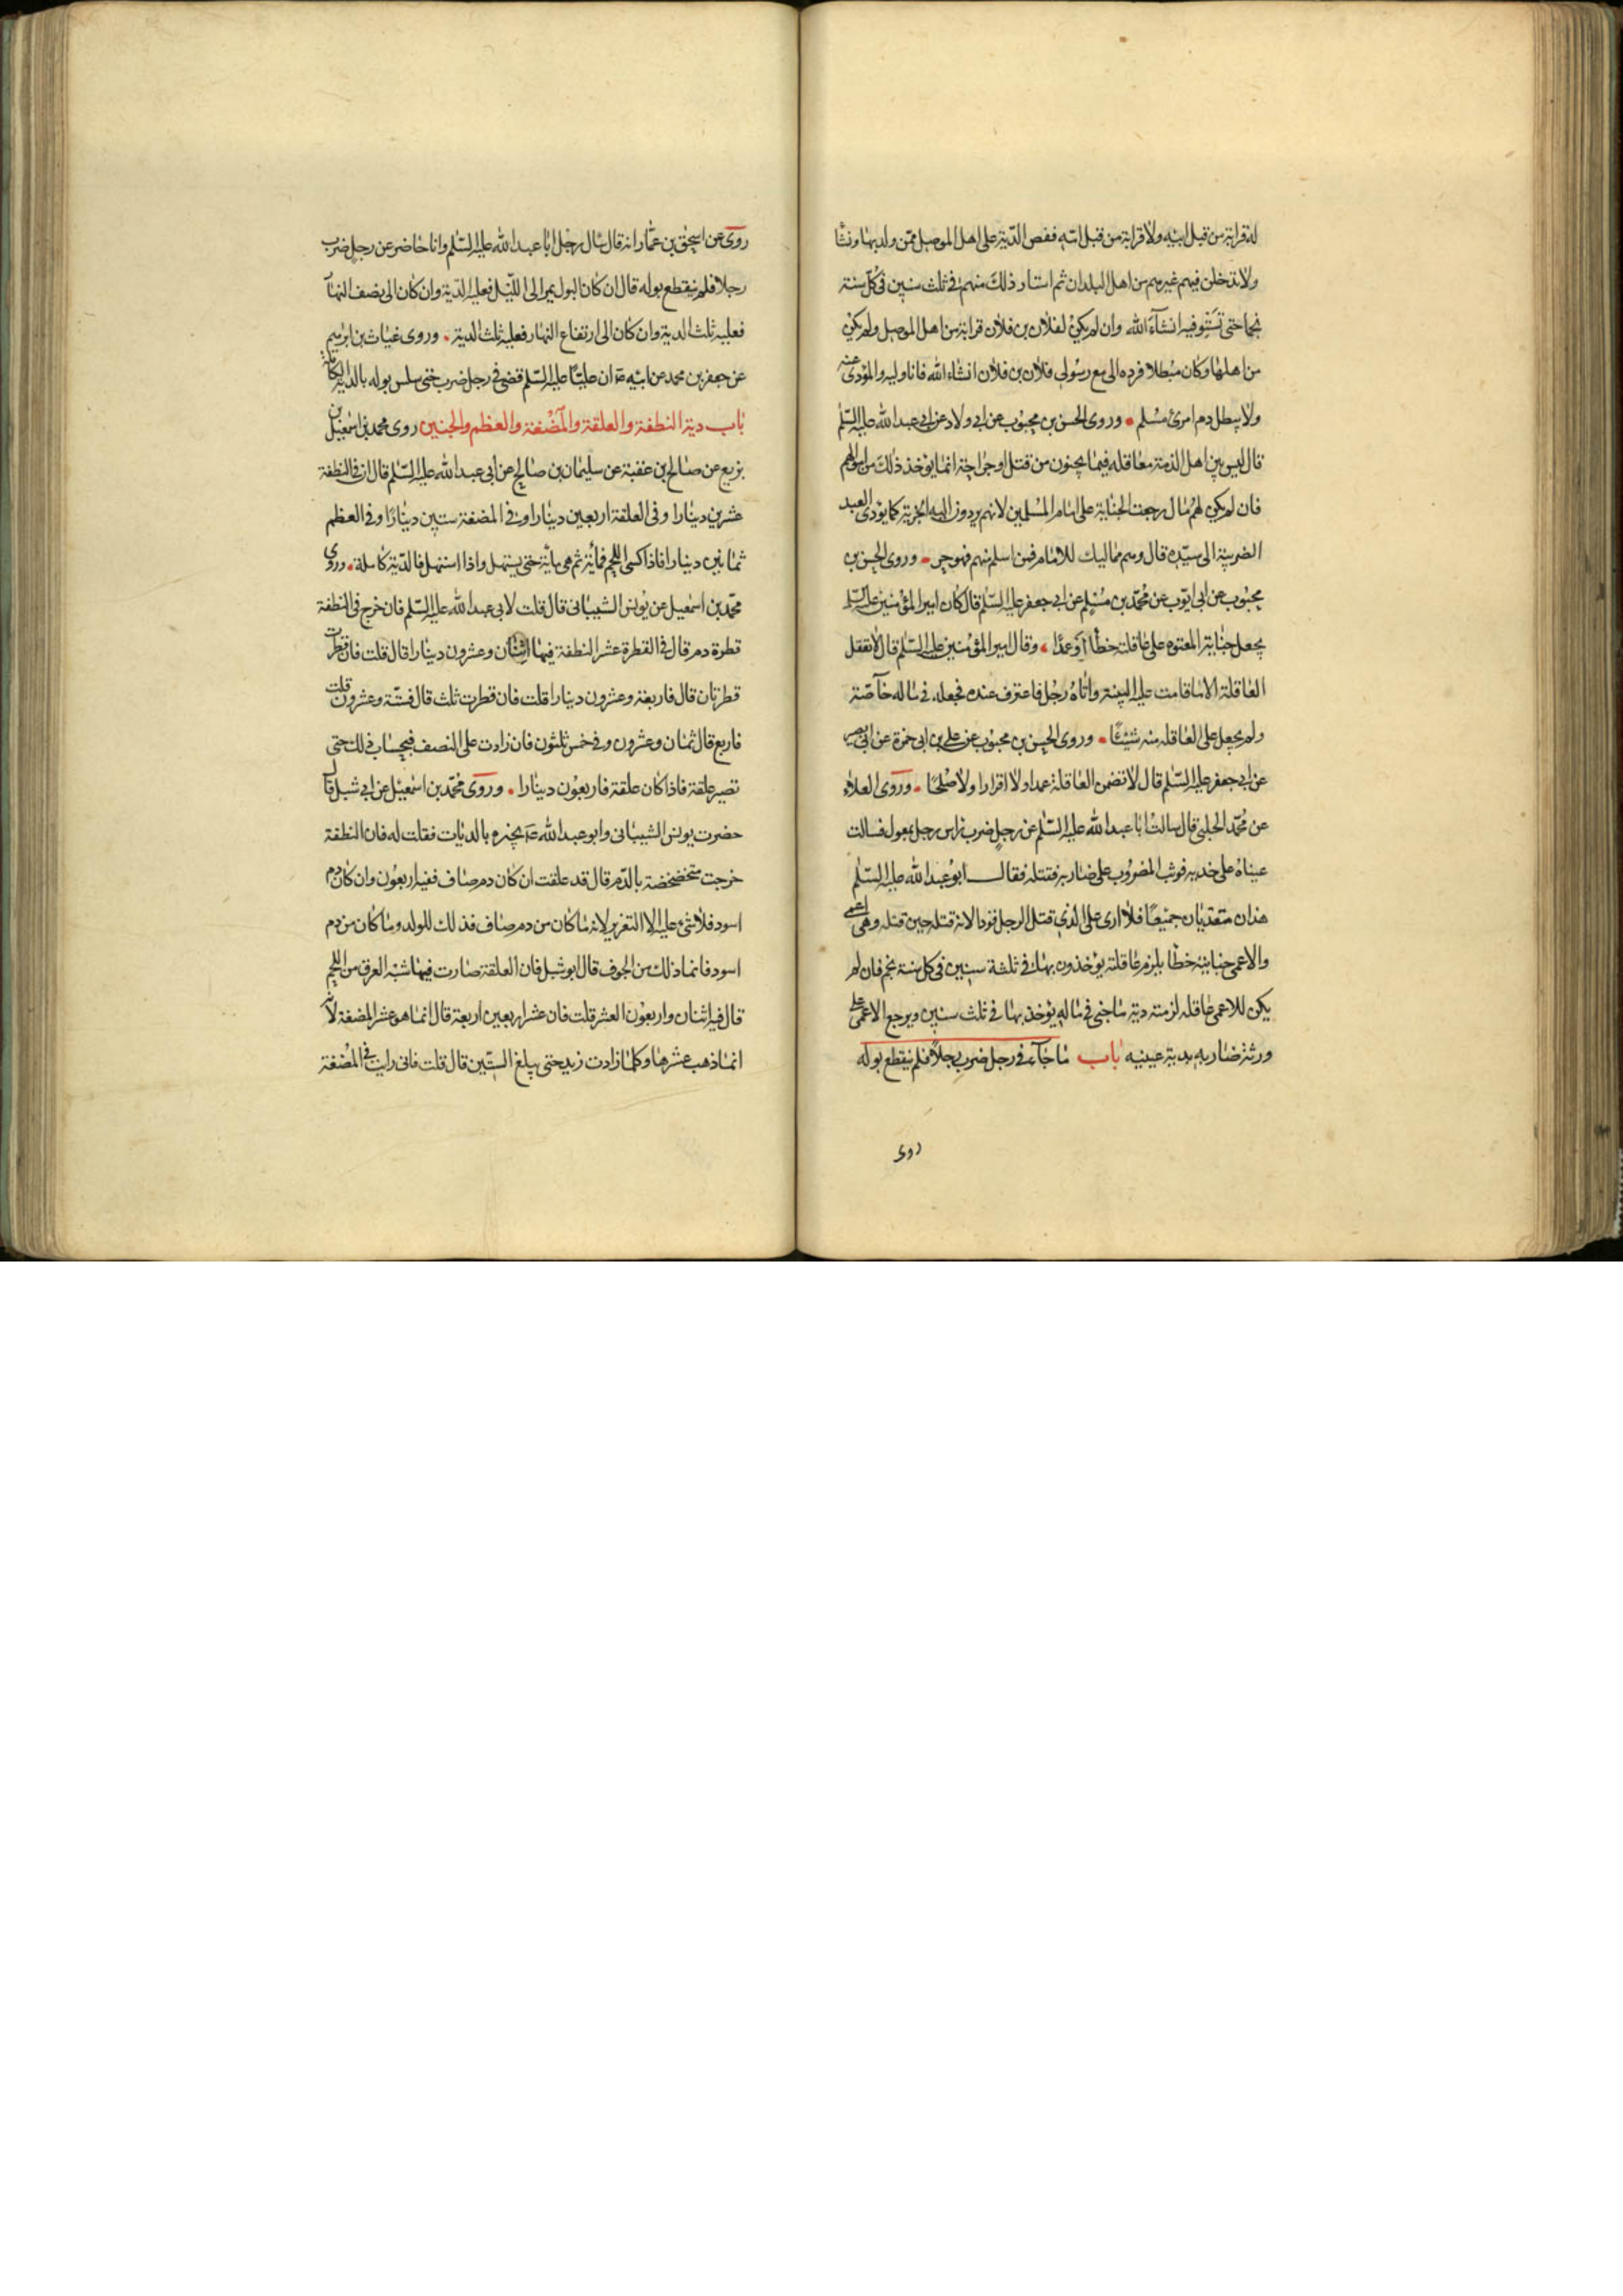 له قرابة من قبل ابيه ولا قرابة من قبل امه ففض الدّية على اهل الموصل ممّن ولد بها ونشا
ولا تدخلن فيهم غيرهم من اهل البلدان ثم استاد ذلك منهم في ثلث سنين في كلّ سنة
نجما حتى تستوفيه انشآء الله وان لم يكن لفلان بن فلان قرابة من اهل الموصل ولم يكن
من اهلها وكان مبطلا فرده الى مع رسولى فلان بن فلان انشاء الله فانا وليه والمؤدى عنه
ولا يبطل دم امرئ مسلم وروى الحسن بن محبوب عن ابى ولاد عن ابى عبد الله عليه السّلم
قال ليس بين اهل الذمة معاقله فيما يجنون من قتل او جراحة انما يؤخذ ذلك من اموالهم
فان لم يكن لهم مال رجعت الجناية على امام المسلمين لانهم يردون اليه الجزية كما يؤدى العبد
الضريبة الى سيّده قال وهم مماليك للامام فمن اسلم منهم فهو حر وروى الحسن بن
محبوب عن ابى ايّوب عن محمّد بن مسلم عن ابى جعفر عليه السّلم قال كان امير المؤمنين عليه السّلم
يجعل جناية المعتوه على عاقلته خطأ او عمدا وقال امير المؤمنين عليه السّلم قال لا تعقل
العاقلة الا ما قامت عليه البينة واتاه رجل فاعترف عنده فجعله في ماله خاصّة
ولم يجعل على العاقله منه شيئا وروى الحسن بن محبوب عن على بن ابى حمزة عن ابى بصير
عن ابى جعفر عليه السّلم قال لا تضمن العاقلة عمدا ولا اقرارا ولا صلحا وروى العلاء
عن محمّد الحلبى قال سالت ابا عبد الله عليه السّلم عن رجل ضرب راس رجل بمعول فسالت
عيناه على خديه فوثب المضروب على ضاربه فقتله فقال ابو عبد الله عليه السّلم
هذان متعديان جميعا فلا ارى على الذى قتل الرجل قودا لانه قتله حين قتله وهو اعمى
والاعمى جنايته خطأ يلزم عاقلته يؤخذون بها في ثلثة سنين في كل سنة نجم فان لم
يكن للاعمى عاقله لزمته دية ما جنى في ماله يؤخذ بها في ثلث سنين ويرجع الاعمى على
ورثة ضاربه بدية عينيه باب ما جآء في رجل ضرب رجلا فلم ينقطع بوله
روى
روى عن اسحق بن عمّار انه قال سال رجل ابا عبد الله عليه السّلم وانا حاضر عن رجل ضرب
رجلا فلم ينقطع بوله قال ان كان البول يمر الى اللّيل فعليه الدّية وان كان الى نصف النهار
فعليه ثلث الدية وان كان الى ارتفاع النهار فعليه ثلث الدية وروى غياث بن ابرهيم
عن جعفر بن محمد عن ابيه ان عليّا عليه السّلم قضى في رجل ضرب حتى سلس بوله بالدّية الكاملة
باب دية النطفة والعلقة والمضغة والعظم والجنين روى محمد بن اسمعيل بن
بزيع عن صالح بن عقبة عن سليمان بن صالح عن ابى عبد الله عليه السّلم قال ان في النطفة
عشرين دينارا وفي العلقة اربعين دينارا وفي المضغة ستين دينارا وفي العظم
ثمانين دينارا فاذا كسى اللحم فمائة ثم هى مائة حتى يستهل واذا استهل فالدّية كاملة وروى
محمّد بن اسمعيل عن يونس الشيبانى قال قلت لابى عبد الله عليه السّلم فان خرج في النطفة
قطرة دم قال في القطرة عشر النطفة فيها اثنان وعشرون دينارا قال قلت فان قطرت
قطرتان قال فاربعة وعشرون دينارا قلت فان قطرت ثلث قال فستّة وعشرون قلت
فاربع قال ثمان وعشرون وفي خمس ثلثون فان زادت على النصف فبحساب ذلك حتى
تصير علقة فاذا كان علقة فاربعون دينارا وروى محمّد بن اسمعيل عن ابى شبل قال
حضرت يونس الشيبانى وابو عبد الله يخبره بالديات فقلت له فان النطفة
خرجت متخضخضة بالدّم قال قد علقت ان كان دم صاف ففيه اربعون وان كان دم
اسود فلا شئ عليه الا التعزير لانه ما كان من دم صاف فذلك للولد وما كان من دم
اسود فانما ذلك من الجوف قال ابو شبل فان العلقة صارت فيها شبه العرق من اللحم
قال فيه اثنان واربعون العشر قلت فان عشر اربعين اربعة قال انما هو عشر المضغة لانه
انما ذهب عشرها وكلما زادت زيد حتى يبلغ الستّين قال قلت فانى رايت في المضغة